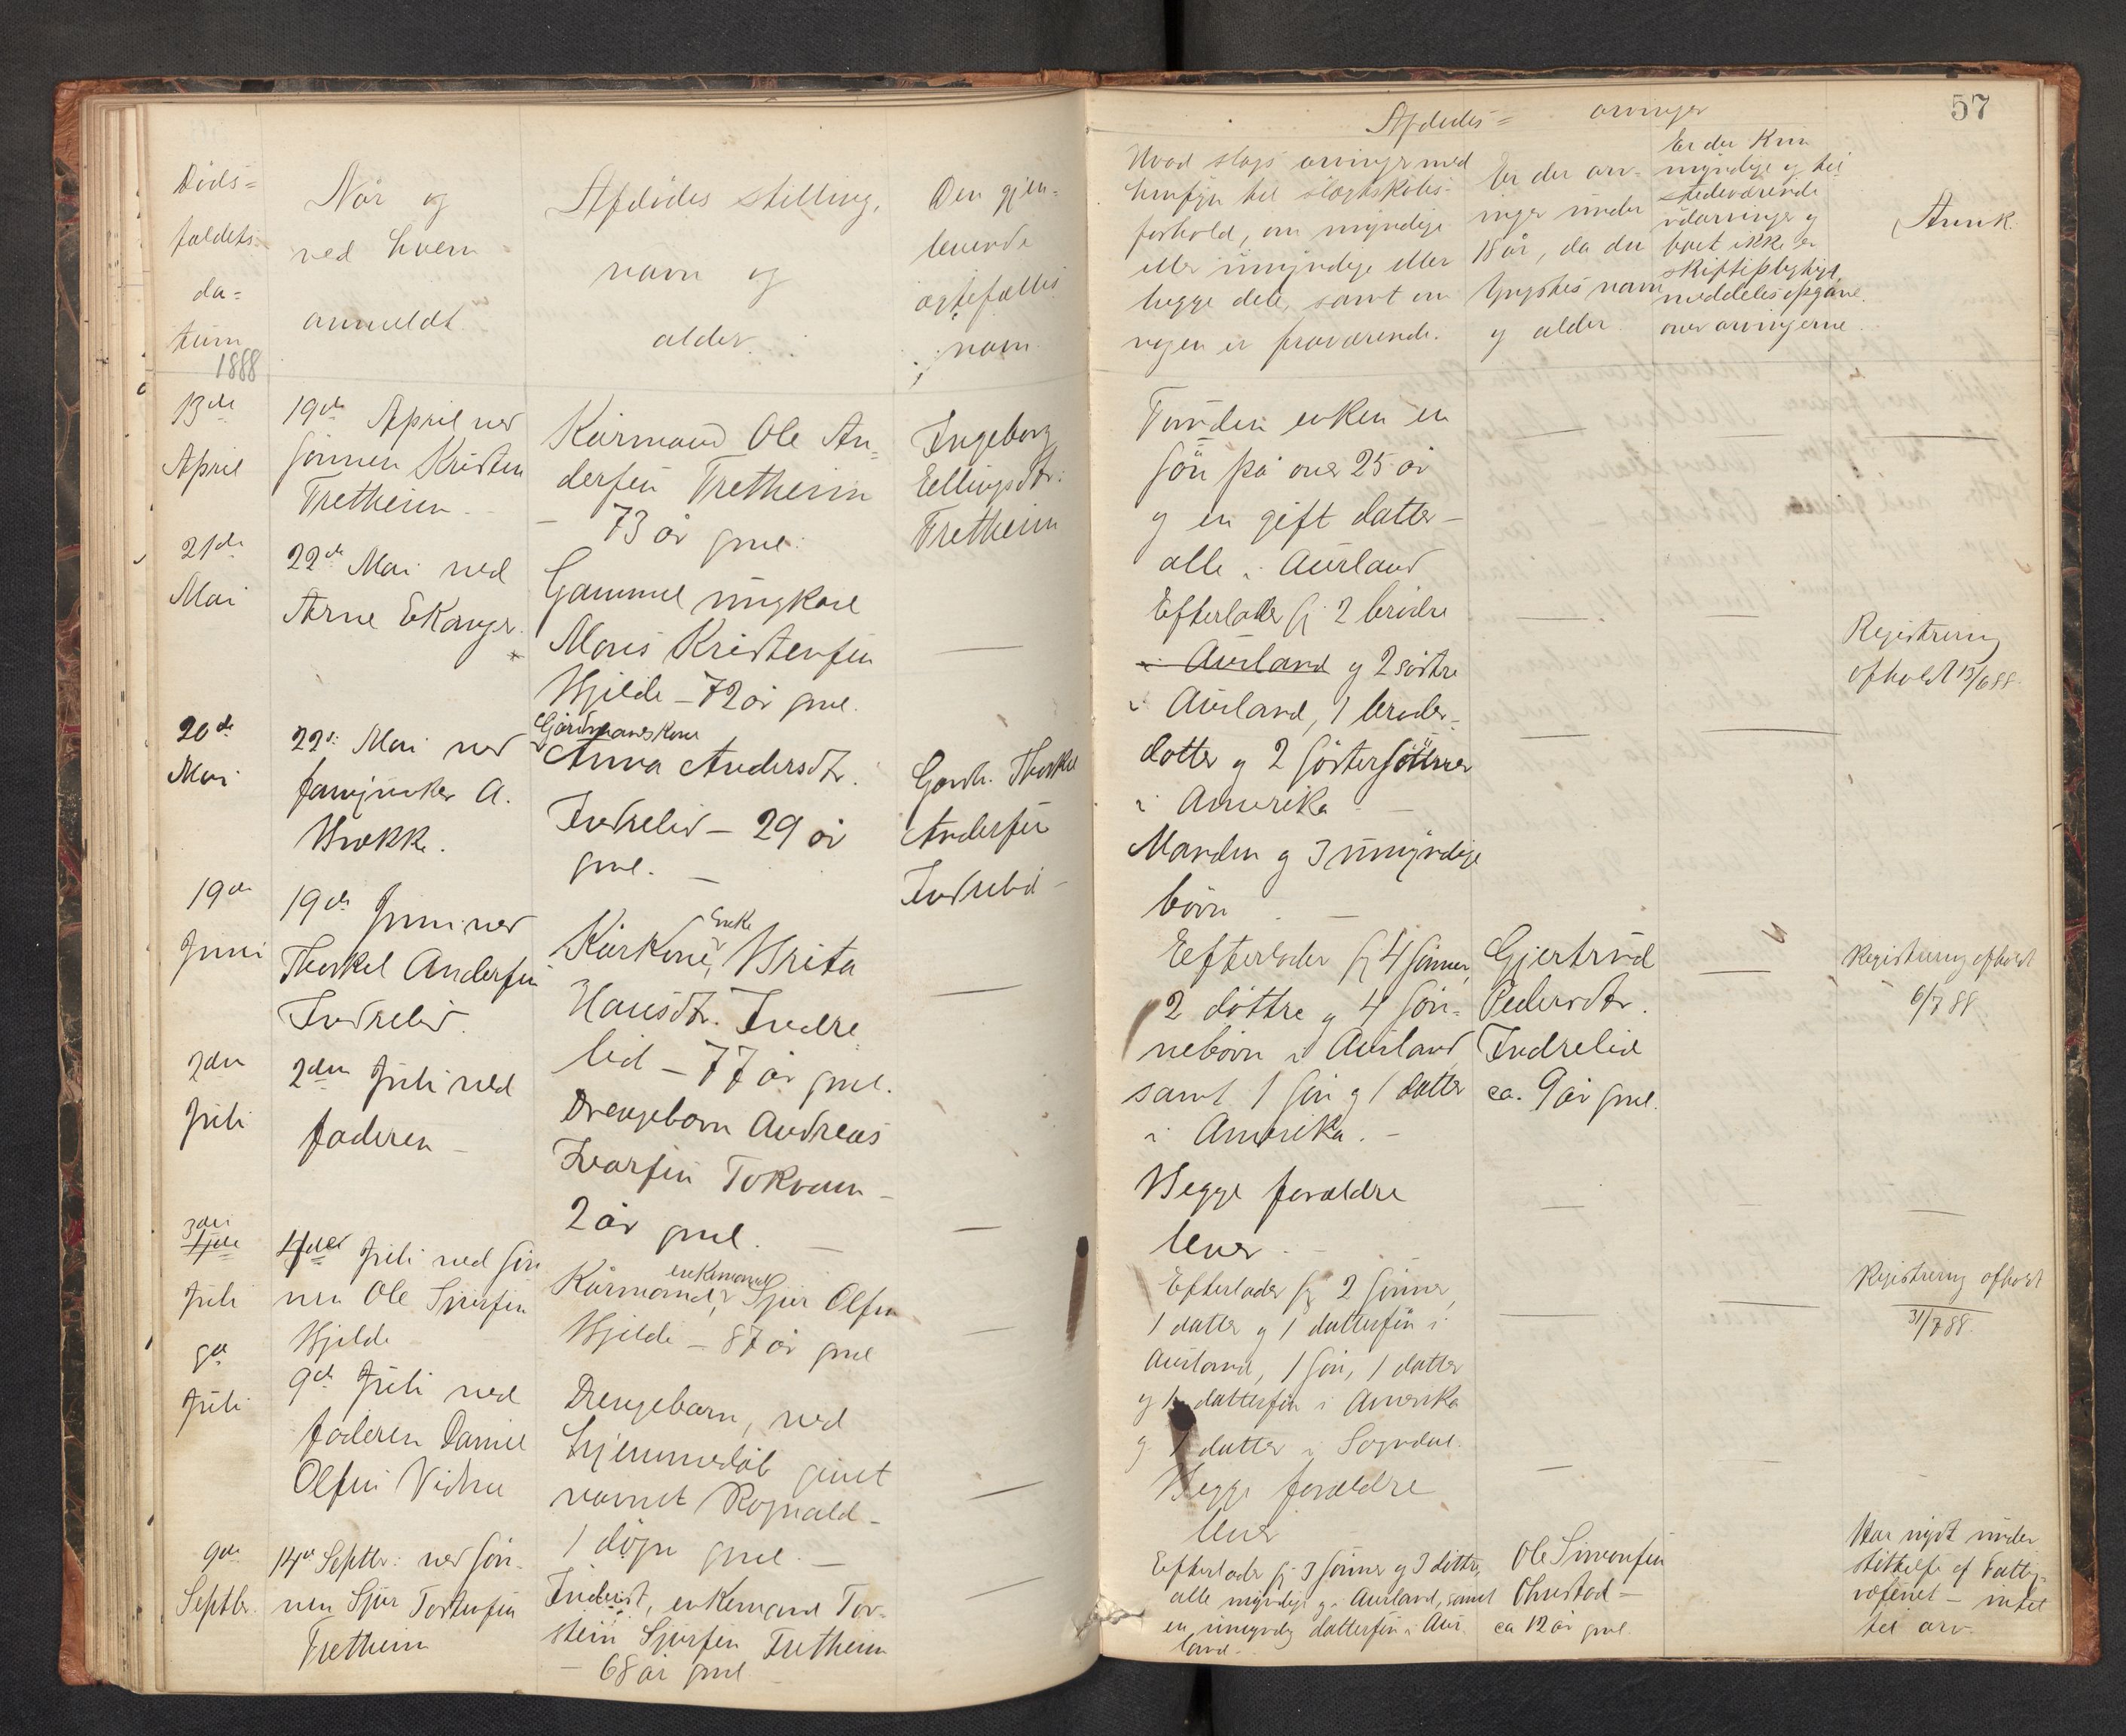 57
Afdødes = arvinger
Døds=
faldets
da=
tum
1888
Når og
ved hvem
anmeldt.
Afdødes stilling,
navn og
alder.
Den gjen-
levende
ægtefælles
navn
Hvad slags arvinger med
hensyn til slægtskabs-
forhold, om myndige
eller umyndige eller
begge dele, samt om
nogen er fraværende.
Er der arv-
inger under
18 år, da den
yngstes navn
og alder
Er der kun
myndige og til
stedeværende
udarvinger og
boet ikke er
skiftepligtigt,
meddeles opgave
over arvingerne.
Anmk.
13de
April
19de April ved
sønnen Kristen
Fretheim
Kårmand Ole An=
dersen Fretheim
— 73 år gml.
Ingeborg
Ellingsdtr.
Fretheim
Foruden enken en
søn på over 25 år
og en gift datter —
alle i Aurland
21de
Mai
22de Mai ved
Arne Ekanger.
Gammel ungkarl
Mons Kristensen
Hjilde — 72 år gml.
Efterlader sig 2 brødre
i Aurland og 2 søstre
i Aurland, 1 broder-
datter og 2 søstersønner
i Amerika —
Registrering
afholdt 13/6 88.
20de
Mai
22de Mai ved
A.
Brekke.
Gårdmandskone
Anna Andersdtr.
Indrelid — 29 år
gml. —
Gardb. Thorkel
Andersen
Indrelid —
Manden og 3 umyndige
børn —
19de
Juni
19de Juni ved
Thorkel Andersen
Indrelid.
Enke
Kårkone, Brita
Hansdtr. Indre
lid — 77 år gml.
Efterlader sig 4 sønner,
2 døttre og 4 søn-
nebørn i Aurland
samt 1 søn og 1 datter
i Amerika. —
Gjertrud
Pedersdtr.
Indrelid
ca. 9 år gml.
Registrering afholdt
6/7 88
2den
Juli
2den Juli ved
faderen —
Drengebarn Andreas
Ivarsen Tokvam —
2 år gml. —
Begge forældre
lever —
3die
4de
Juli
4de Juli ved søn
nen Ole Sjursen
Hjilde
enkemand
Kårmand, Sjur Olsen
Hjilde — 87 år gml
Efterlader sig 2 sønner,
1 datter og 1 dattersøn i
Aurland, 1 søn, 1 datter
og 1 dattersøn i Amerika
og 1 datter i Sogndal.
Registrering afholdt
31/7 88.
9de
Juli
9de Juli ved
faderen Daniel
Olsen Vidme
Drengebarn, ved
hjemmedåb givet
navnet Rognald —
1 døgn gml. —
Begge forældre
lever
9de
Septbr.
14de Septbr. ved søn-
nen Sjur Torstensen
Fretheim
Inderst, enkemand Tor-
stein Sjursen Fretheim
— 68 år gml
Efterlader sig 3 sønner og 3 døttre,
alle myndige og i Aurland, samt
en umyndig dattersøn i Aur-
land —
Ole Simonsen
Ohnstad —
ca 12 år gml.
Har nydt under
støttelse af Fattig-
væsenet — intet
til arv.